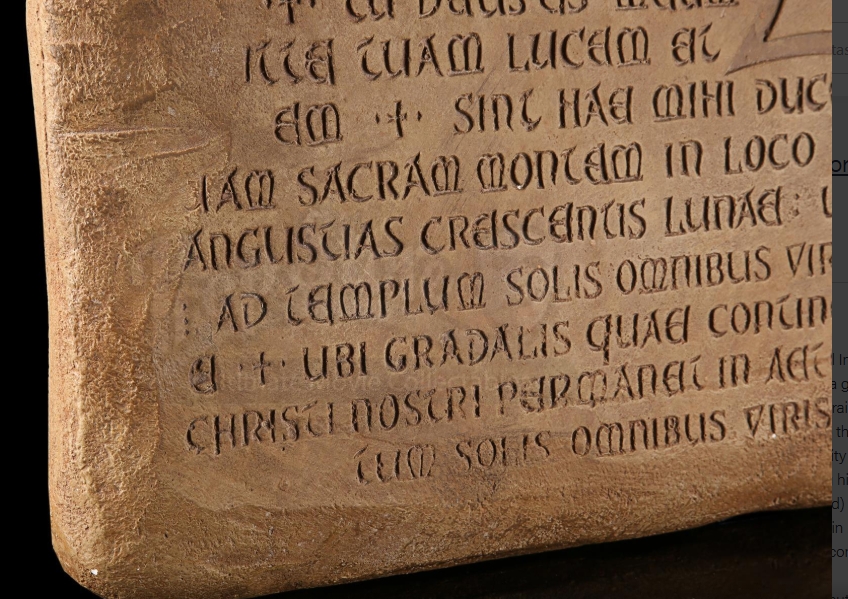 TU DEUS ES
TUAM LUCEM ET
EM ·+· SINT HAE MIHI DUC
IAM SACRAM MONTEM IN LOCO
ANGUSTIAS CRESCENTIS LUNAE : U
: AD TEMPLUM SOLIS OMNIBUS VIR
E ·+· UBI GRADALIS QUAE CONTIN
CHRISTI NOSTRI PERMANET IN AET
TUM SOLIS OMNIBUS VIRIS